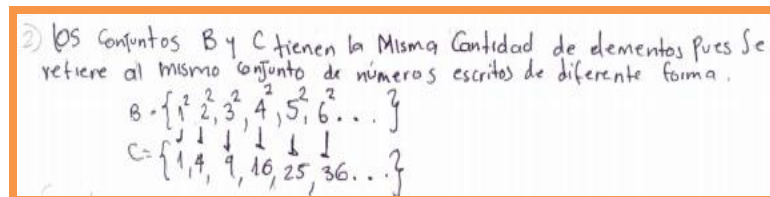 2) los Conjuntos B y C tienen la Misma Cantidad de elementos pues Se
refiere al mismo conjunto de números escritos de diferente forma.
B = {1², 2², 3², 4², 5², 6² . . . }
↓ ↓ ↓ ↓ ↓ ↓
C = {1, 4, 9, 16, 25, 36 . . . }